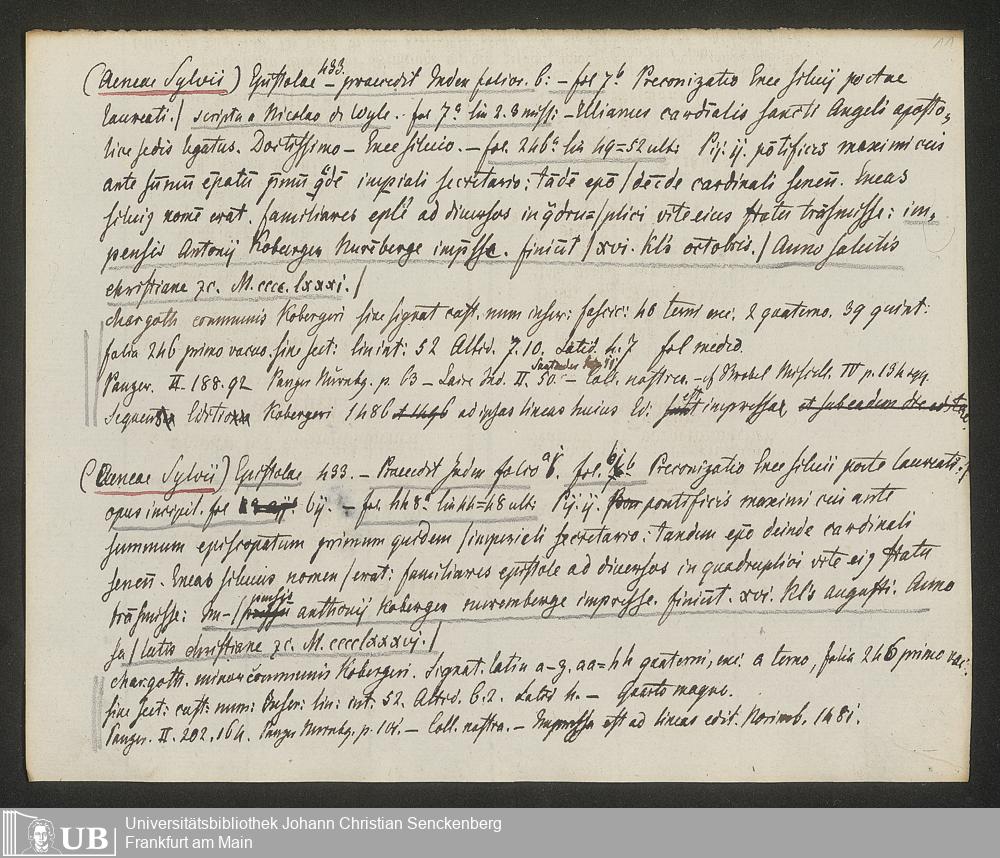 11
(Aeneae Sylvii) Epistolae 433. – praecedit Index folior. 6: – fol 7b Preconizatio Enee silvij poetae
laureati. / scripta a Nicolao de Wyle. fol 7a lin 2.3 – cardīalis sancti Angeli aposto-
lice sedis legatus. Doctissimo – Enee silvio. – fol. 246a lin 49=52 ult: Pij. ij. pōtificis maximi cui
ante sūmū ēpatū p̄mū q̄dē impiali secretario; tādē epō / deīde cardinali senen̄. Eneas
silviꝰ nomē erat. familiares eplē ad diuersos in q̄dru=/plici vite eius statu trāsmisse: im-
pensis Antonij Koberger Nurēberge imp̄sse. finiūt / xvi. kl's octobris. / Anno salutis
christiane ꝛc. M.cccc.lxxxi. /
char goth communis Kobergeri sine signat cust. num inser: fascic: 40 terni 2 quaterno. 39 quint:
folia 246 primo vacuo. sine sect: lin int: 52 Altid. 7.10. Latid. 4.7 fol medio.
Panzer. II. 188.92 Panzer Nürnbg. p. 63 – Laire Ind. II. 50. – Coll. nostra. – cf Strobel Miscell. IV p. 134
Sequens Editio Kobergeri 1486 et 1496 ad ipsas lineas huius Ed: est impressa,
(Aeneae Sylvii) Epistolae 433. – Praecedit Index folio a6. fol. b Preconizatio Enee silvii poete laureati: /
opus incipit. fol bij. – fol. 248a lin 44=48 ult: Pij. ij. pontificis maximi cui ante
summum episcopatum primum quidem / imperiali secretario: tandem epō deinde cardinali
senen̄. Eneas silvius nomen / erat: familiares epistole ad diuersos in quadruplici vite eiꝰ statu
trāsmisse: im-/pensis anthonij Koberger nuremberge impresse. finiūt. xvi. kl's augusti. Anno
sa/lutis christiane ꝛc. M.cccclxxxvj. /
char. goth. minor communis Kobergeri. Signat. latin a–z, aa=hh quaterni, exc. a terno, folia 246 primo vac:
sine sect: cust: num: Inser: lin: int. 52. Altid. 6.2. Latid 4. – Quarto magno.
Panzer. II. 202.164. Panzer Nürnbg. p. 101. – Coll. nostra. – Impressa est ad lineas edit. Norimb. 1481.
UB Universitätsbibliothek Johann Christian Senckenberg
Frankfurt am Main